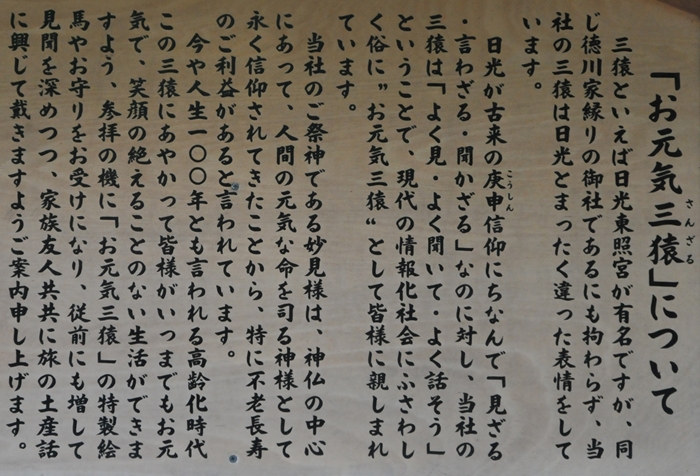 「お元気三猿」について
さんざる
三猿といえば日光東照宮が有名ですが、同
じ徳川家縁りの御社であるにも拘わらず、当
社の三猿は日光とまったく違った表情をして
います。
日光が古来の庚申信仰にちなんで「見ざる
こうしん
・言わざる・聞かざる」なのに対し、当社の
三猿は「よく見・よく聞いて・よく話そう」
ということで、現代の情報化社会にふさわし
く俗に〝お元気三猿〟として皆様に親しまれ
ています。
当社のご祭神である妙見様は、神仏の中心
にあって、人間の元気な命を司る神様として
永く信仰されてきたことから、特に不老長寿
のご利益があると言われています。
今や人生一〇〇年とも言われる高齢化時代
この三猿にあやかって皆様がいつまでもお元
気で、笑顔の絶えることのない生活ができま
すよう、参拝の機に「お元気三猿」の特製絵
馬やお守りをお受けになり、従前にも増して
見聞を深めつつ、家族友人共共に旅の土産話
に興じて戴きますようご案内申し上げます。